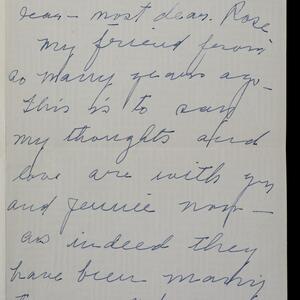 dear - most dear. Rose
my friend from
so many years ago -
This is to say
my thoughts and
love are with you
and Jennie now -
as indeed they
have been many